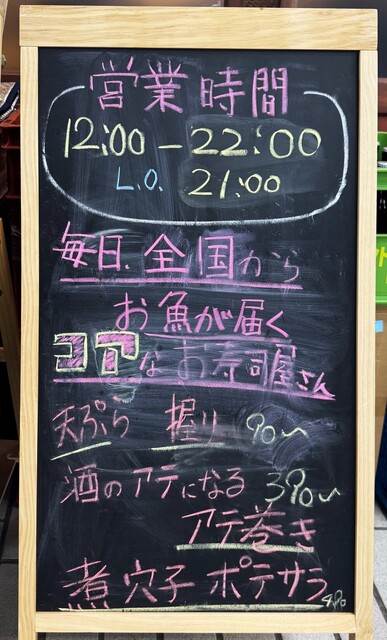 営業時間
12:00-22:00
L.O. 21:00
毎日、全国から
お魚が届く
コアなお寿司屋さん
天ぷら 握り 90〜
酒のアテになる 390〜
アテ巻き
煮穴子ポテサラ 490